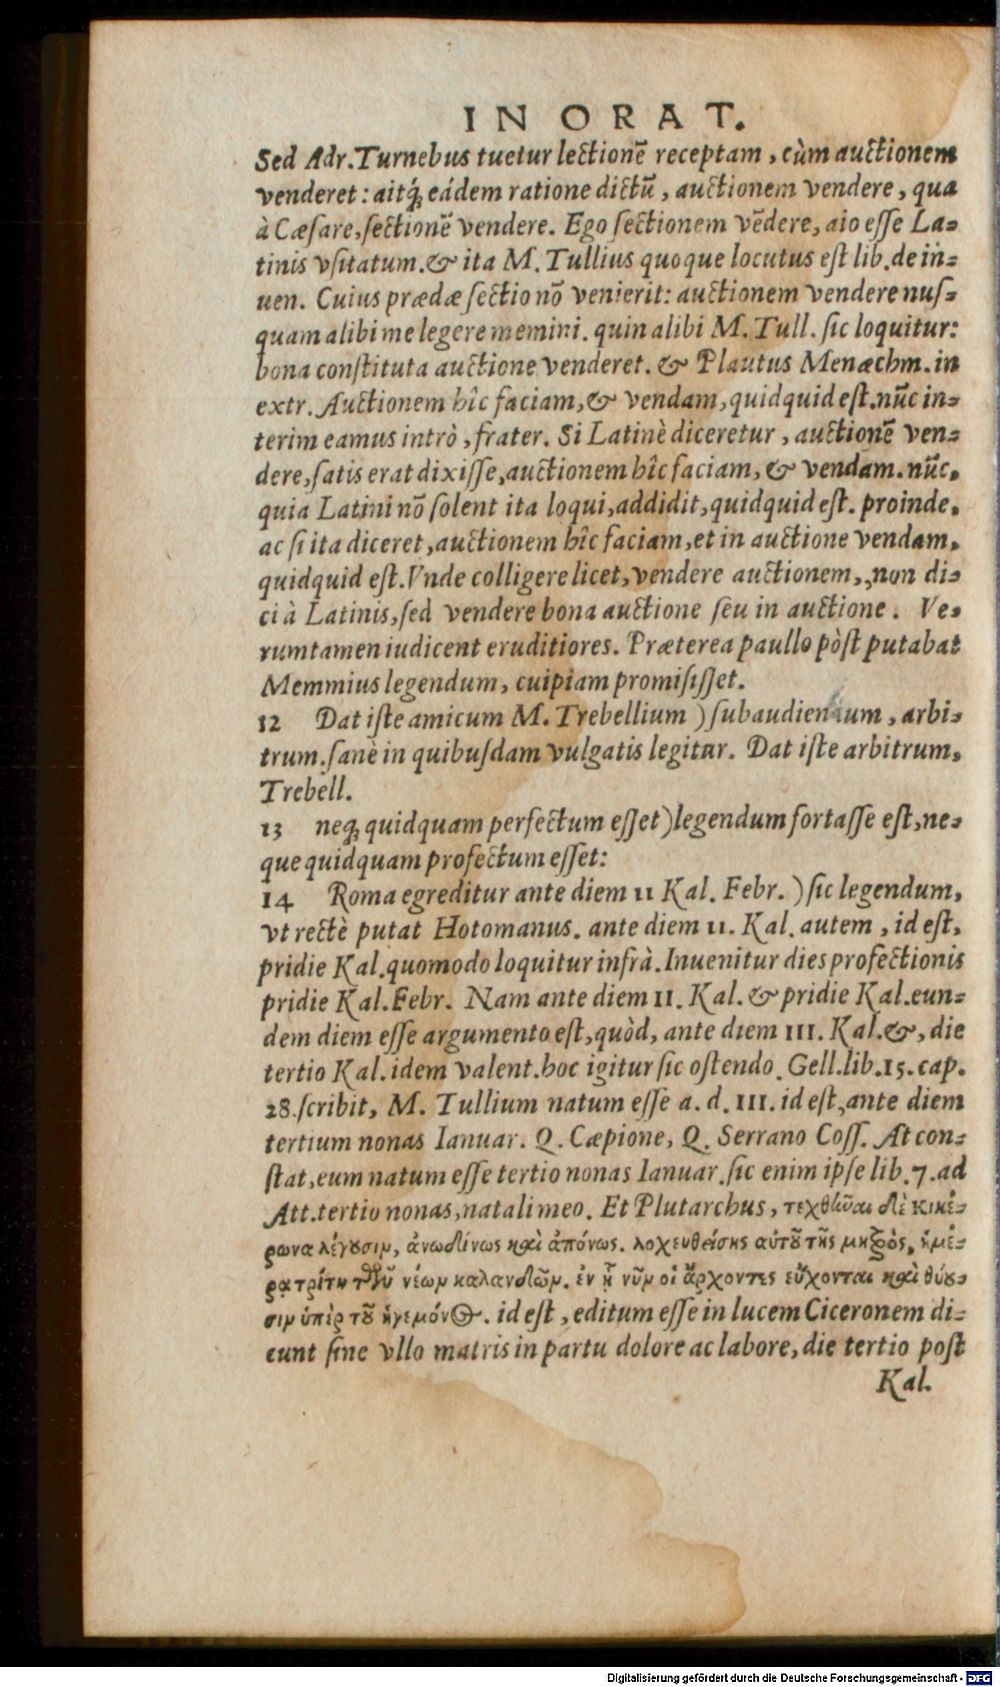 IN ORAT.
Sed Adr. Turnebus tuetur lectionē receptam, cùm auctionem
venderet: aitq́; eádem ratione dictū, auctionem vendere, qua
à Cæsare, sectionē vendere. Ego sectionem vēdere, aio esse La-
tinis vsitatum. & ita M. Tullius quoque locutus est lib. de in-
uen. Cuius prædæ sectio nō venierit: auctionem vendere nus-
quam alibi me legere memini. quin alibi M. Tull. sic loquitur:
bona constituta auctione venderet. & Plautus Menæchm. in
extr. Auctionem hîc faciam, & vendam, quidquid est. nūc in-
terim eamus intrò, frater. Si Latinè diceretur, auctionē ven-
dere, satis erat dixisse, auctionem hîc faciam, & vendam. nūc,
quia Latini nō solent ita loqui, addidit, quidquid est. proinde,
ac si ita diceret, auctionem hîc faciam, et in auctione vendam,
quidquid est. Vnde colligere licet, vendere auctionem, non di-
ci à Latinis, sed vendere bona auctione seu in auctione. Ve-
rumtamen iudicent eruditiores. Præterea paullo pòst putabat
Memmius legendum, cuipiam promisisset.
12 Dat iste amicum M. Trebellium ) subaudiendum, arbi-
trum. sanè in quibusdam vulgatis legitur. Dat iste arbitrum,
Trebell.
13 neq; quidquam perfectum esset) legendum fortasse est, ne-
que quidquam profectum esset:
14 Roma egreditur ante diem 11 Kal. Febr. ) sic legendum,
vt rectè putat Hotomanus. ante diem 11. Kal. autem, id est,
pridie Kal. quomodo loquitur infrà. Inuenitur dies profectionis
pridie Kal. Febr. Nam ante diem 11. Kal. & pridie Kal. eun-
dem diem esse argumento est, quòd, ante diem 111. Kal. &, die
tertio Kal. idem valent. hoc igitur sic ostendo. Gell. lib. 15. cap.
28. scribit, M. Tullium natum esse a. d. 111. id est, ante diem
tertium nonas Ianuar. Q. Cæpione, Q. Serrano Coss. At con-
stat, eum natum esse tertio nonas Ianuar. sic enim ipse lib. 7. ad
Att. tertio nonas, natali meo. Et Plutarchus, τεχθῆναι δὲ κικέ-
ρωνα λέγουσιν, ἀνωδίνως καὶ ἀπόνως. λοχευθείσης αὐτοῦ τῆς μητρὸς, ἡμέ-
ρᾳ τρίτῃ τῶν νέων καλανδῶν. ἐν ᾗ νῦν οἱ ἄρχοντες εὔχονται καὶ θύου-
σιν ὑπὲρ τοῦ ἡγεμόνος. id est, editum esse in lucem Ciceronem di-
cunt sine vllo matris in partu dolore ac labore, die tertio post
Kal.
Digitalisierung gefördert durch die Deutsche Forschungsgemeinschaft - DFG